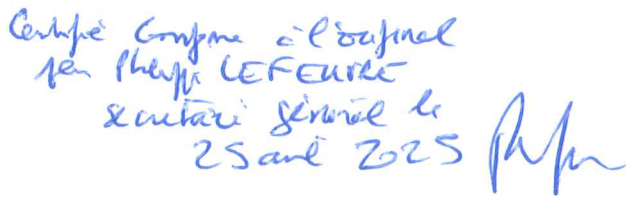 Certifié Conforme à l'original
par Philippe LEFEUVRE
secrétaire général le
25 avril 2025